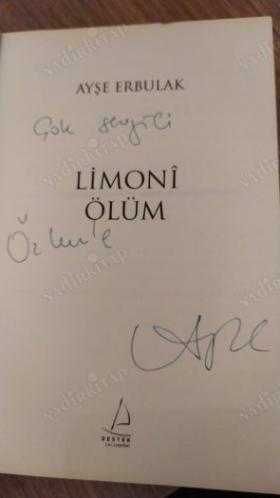 AYŞE ERBULAK
Çok sevgili
LİMONÎ
ÖLÜM
Ayşe
DESTEK
nadirkitap